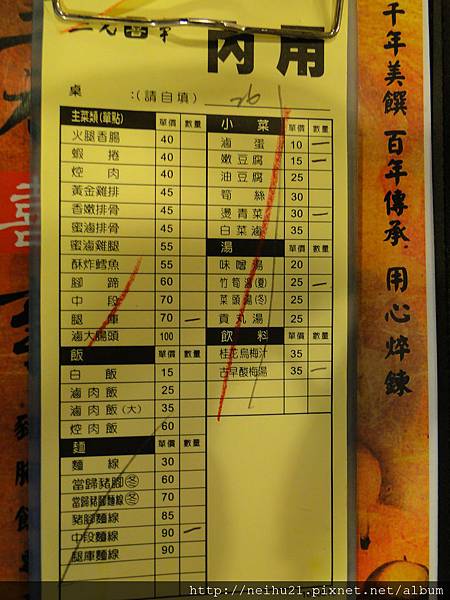 內用
桌 :(請自填) 26
主菜類(單點) 單價 數量
火腿香腸 40
蝦捲 40
焢肉 40
黃金雞排 45
香嫩排骨 45
蜜滷排骨 45
蜜滷雞腿 55
酥炸鱈魚 55
腳蹄 60
中段 70
腿庫 70 一
滷大腸頭 100
飯 單價 數量
白飯 15
滷肉飯 25
滷肉飯(大) 35
焢肉飯 60
麵 單價 數量
麵線 30
當歸豬腳(冬) 60
當歸豬腳麵線(冬) 70
豬腳麵線 85
中段麵線 90 一
腿庫麵線 90
小菜 單價 數量
滷蛋 10 一
嫩豆腐 15 一
油豆腐 25
筍絲 30
燙青菜 30 一
白菜滷 35
湯 單價 數量
味噌湯 20
竹筍湯(夏) 25 一
菜頭湯(冬) 25
貢丸湯 25
飲料 單價 數量
桂花烏梅汁 35
古早酸梅湯 35 一
千年美饌 百年傳承 用心焠鍊
http://neihu21.pixnet.net/album